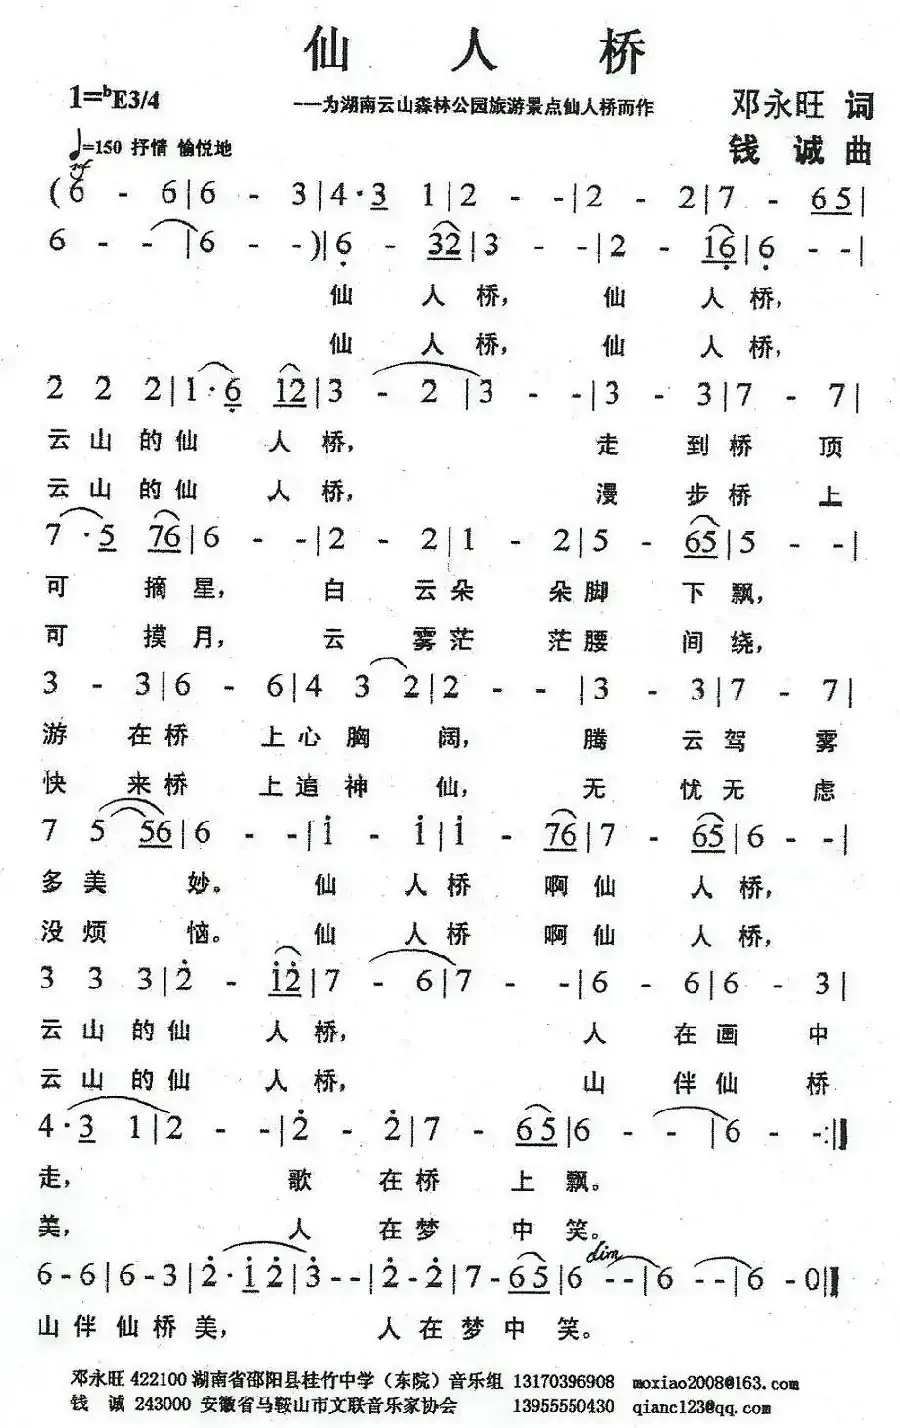 仙人桥
1=ᵇE3/4
——为湖南云山森林公园旅游景点仙人桥而作
邓永旺 词
♩=150 抒情 愉悦地
钱 诚 曲
mf
(6 - 6|6 - 3|4·3 1|2 - -|2 - 2|7 - 65|
6 - -|6 - -)|6 - 32|3 - -|2 - 16|6 - -|
仙 人 桥， 仙 人 桥，
仙 人 桥， 仙 人 桥，
2 2 2|1·6 12|3 - 2|3 - -|3 - 3|7 - 7|
云 山 的 仙 人 桥， 走 到 桥 顶
云 山 的 仙 人 桥， 漫 步 桥 上
7·5 76|6 - -|2 - 2|1 - 2|5 - 65|5 - -|
可 摘 星， 白 云 朵 朵 脚 下 飘，
可 摸 月， 云 雾 茫 茫 腰 间 绕，
3 - 3|6 - 6|4 3 2|2 - -|3 - 3|7 - 7|
游 在 桥 上 心 胸 阔， 腾 云 驾 雾
快 来 桥 上 追 神 仙， 无 忧 无 虑
7 5 56|6 - -|1̇ - 1̇|1̇ - 76|7 - 65|6 - -|
多 美 妙。 仙 人 桥 啊 仙 人 桥，
没 烦 恼。 仙 人 桥 啊 仙 人 桥，
3 3 3|2̇ - 1̇2̇|7 - 6|7 - -|6 - 6|6 - 3|
云 山 的 仙 人 桥， 人 在 画 中
云 山 的 仙 人 桥， 山 伴 仙 桥
4·3 1|2 - -|2̇ - 2̇|7 - 65|6 - -|6 - -:‖
走， 歌 在 桥 上 飘。
美， 人 在 梦 中 笑。
dim
6-6|6-3|2̇·1̇2̇|3̇--|2̇-2̇|7-65|6--|6--|6-0‖
山 伴 仙 桥 美， 人 在 梦 中 笑。
邓永旺 422100 湖南省邵阳县桂竹中学（东院）音乐组 13170396908 moxiao2008@163.com
钱 诚 243000 安徽省马鞍山市文联音乐家协会 13955550430 qianc123@qq.com